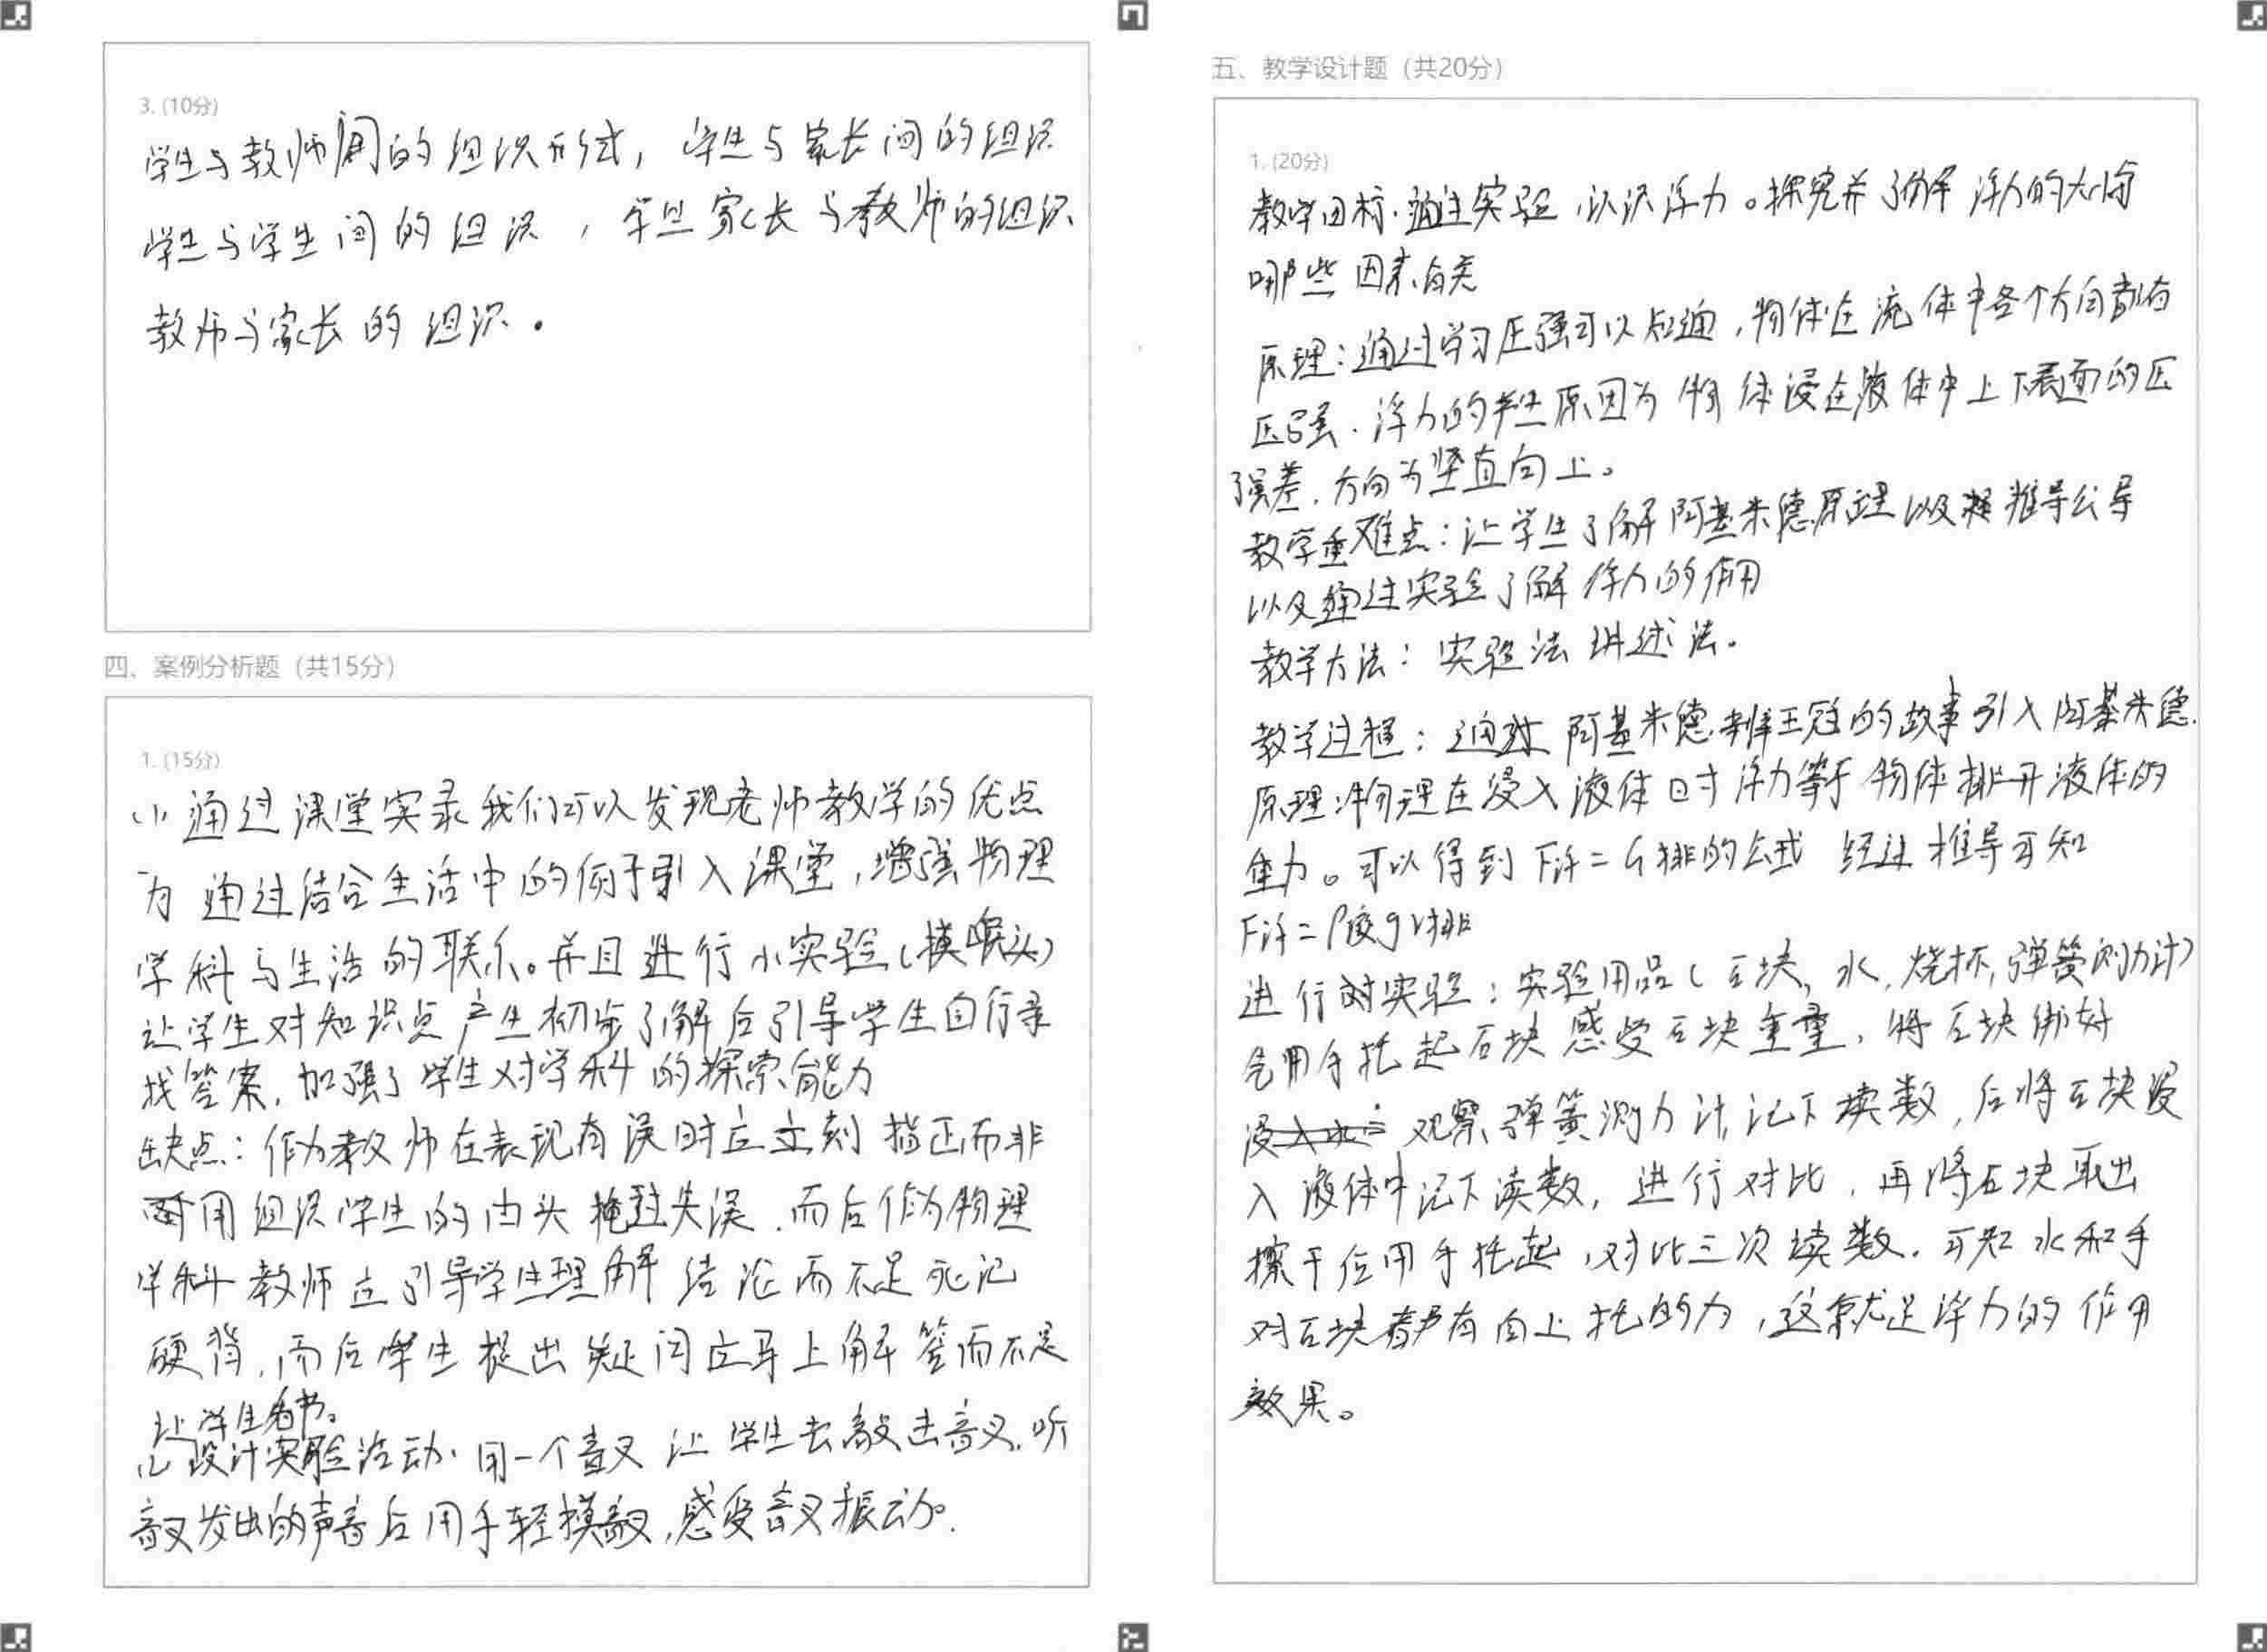 3. (10分)
学生与教师间的组织形式，学生与家长间的组织
学生与学生间的组织，学生家长与教师的组织
教师与家长的组织。
四、案例分析题（共15分）
1. (15分)
(1) 通过课堂实录我们可以发现老师教学的优点
为 通过结合生活中的例子引入课堂，增强物理
学科与生活的联系。并且进行小实验(摸喉头)
让学生对知识点产生初步了解后引导学生自行寻
找答案，加强了学生对学科的探索能力
缺点：作为教师在表现有误时应立刻指正而非
用组织学生的由头掩过失误，而后作为物理
学科教师应引导学生理解结论而不是死记
硬背，而后学生提出疑问应马上解答而不是
让学生看书。
(2) 设计实验活动. 用一个音叉让学生去敲击音叉，听
音叉发出的声音后用手轻摸音叉，感受音叉振动。
五、教学设计题（共20分）
1. (20分)
教学目标. 通过实验，认识浮力。探究并了解浮力的大小与
哪些因素有关
原理：通过学习压强可以知道，物体在流体中各个方向都有
压强. 浮力的产生原因为物体浸在液体中上下表面的压
强差，方向为竖直向上。
教学重难点：让学生了解阿基米德原理以及推导公导
以及通过实验了解浮力的作用
教学方法：实验法 讲述法。
教学过程：通过阿基米德辨王冠的故事引入阿基米德
原理：物理在浸入液体时浮力等于物体排开液体的
重力。可以得到F浮=G排的公式 经过推导可知
F浮=ρ液gV排
进行对实验：实验用品(石块, 水, 烧杯, 弹簧测力计)
先用手托起石块感受石块重量，将石块绑好
观察弹簧测力计，记下读数，后将石块浸
入液体中记下读数，进行对比，再将石块取出
擦干后用手托起，对比三次读数. 可知水和手
对石块都有向上托的力，这就是浮力的作用
效果。